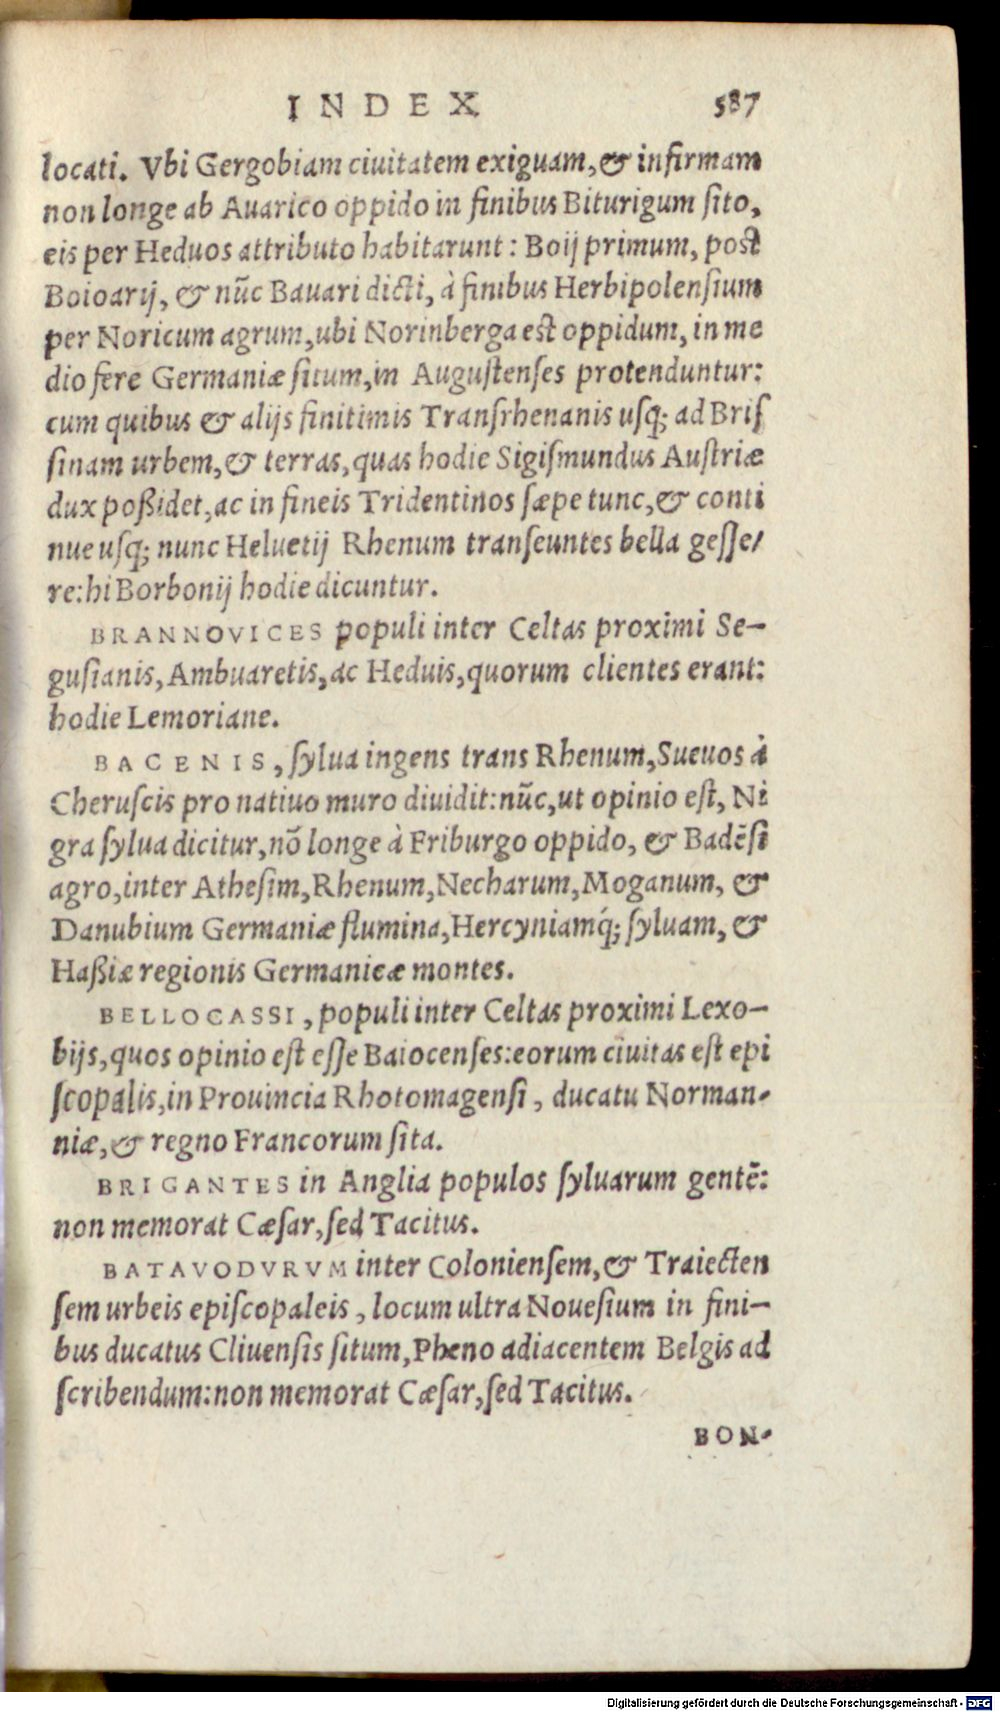 INDEX 587
locati. Vbi Gergobiam ciuitatem exiguam, & infirmam
non longe ab Auarico oppido in finibus Biturigum ſito,
eis per Heduos attributo habitarunt: Boij primum, poſt
Boioarij, & nūc Bauari dicti, à finibus Herbipolenſium
per Noricum agrum, ubi Norinberga eſt oppidum, in me
dio fere Germaniæ ſitum, in Auguſtenſes protenduntur:
cum quibus & alijs finitimis Tranſrhenanis uſq; ad Briſ
ſinam urbem, & terras, quas hodie Sigiſmundus Auſtriæ
dux poßidet, ac in fineis Tridentinos ſæpe tunc, & conti
nue uſq; nunc Heluetij Rhenum tranſeuntes bella geſſe/
re: hi Borbonij hodie dicuntur.
BRANNOVICES populi inter Celtas proximi Se-
guſianis, Ambuaretis, ac Heduis, quorum clientes erant:
hodie Lemoriane.
BACENIS, ſylua ingens trans Rhenum, Sueuos à
Cheruſcis pro natiuo muro diuidit: nūc, ut opinio eſt, Ni
gra ſylua dicitur, nō longe à Friburgo oppido, & Badēſi
agro, inter Atheſim, Rhenum, Necharum, Moganum, &
Danubium Germaniæ flumina, Hercyniamq́; ſyluam, &
Haßiæ regionis Germanicæ montes.
BELLOCASSI, populi inter Celtas proximi Lexo-
bijs, quos opinio eſt eſſe Baiocenſes: eorum ciuitas eſt epi
ſcopalis, in Prouincia Rhotomagenſi, ducatu Norman-
niæ, & regno Francorum ſita.
BRIGANTES in Anglia populos ſyluarum gentē:
non memorat Cæſar, ſed Tacitus.
BATAVODVRVM inter Colonienſem, & Traiecten
ſem urbeis epiſcopaleis, locum ultra Noueſium in fini-
bus ducatus Cliuenſis ſitum, Pheno adiacentem Belgis ad
ſcribendum: non memorat Cæſar, ſed Tacitus.
BON-
Digitalisierung gefördert durch die Deutsche Forschungsgemeinschaft - DFG